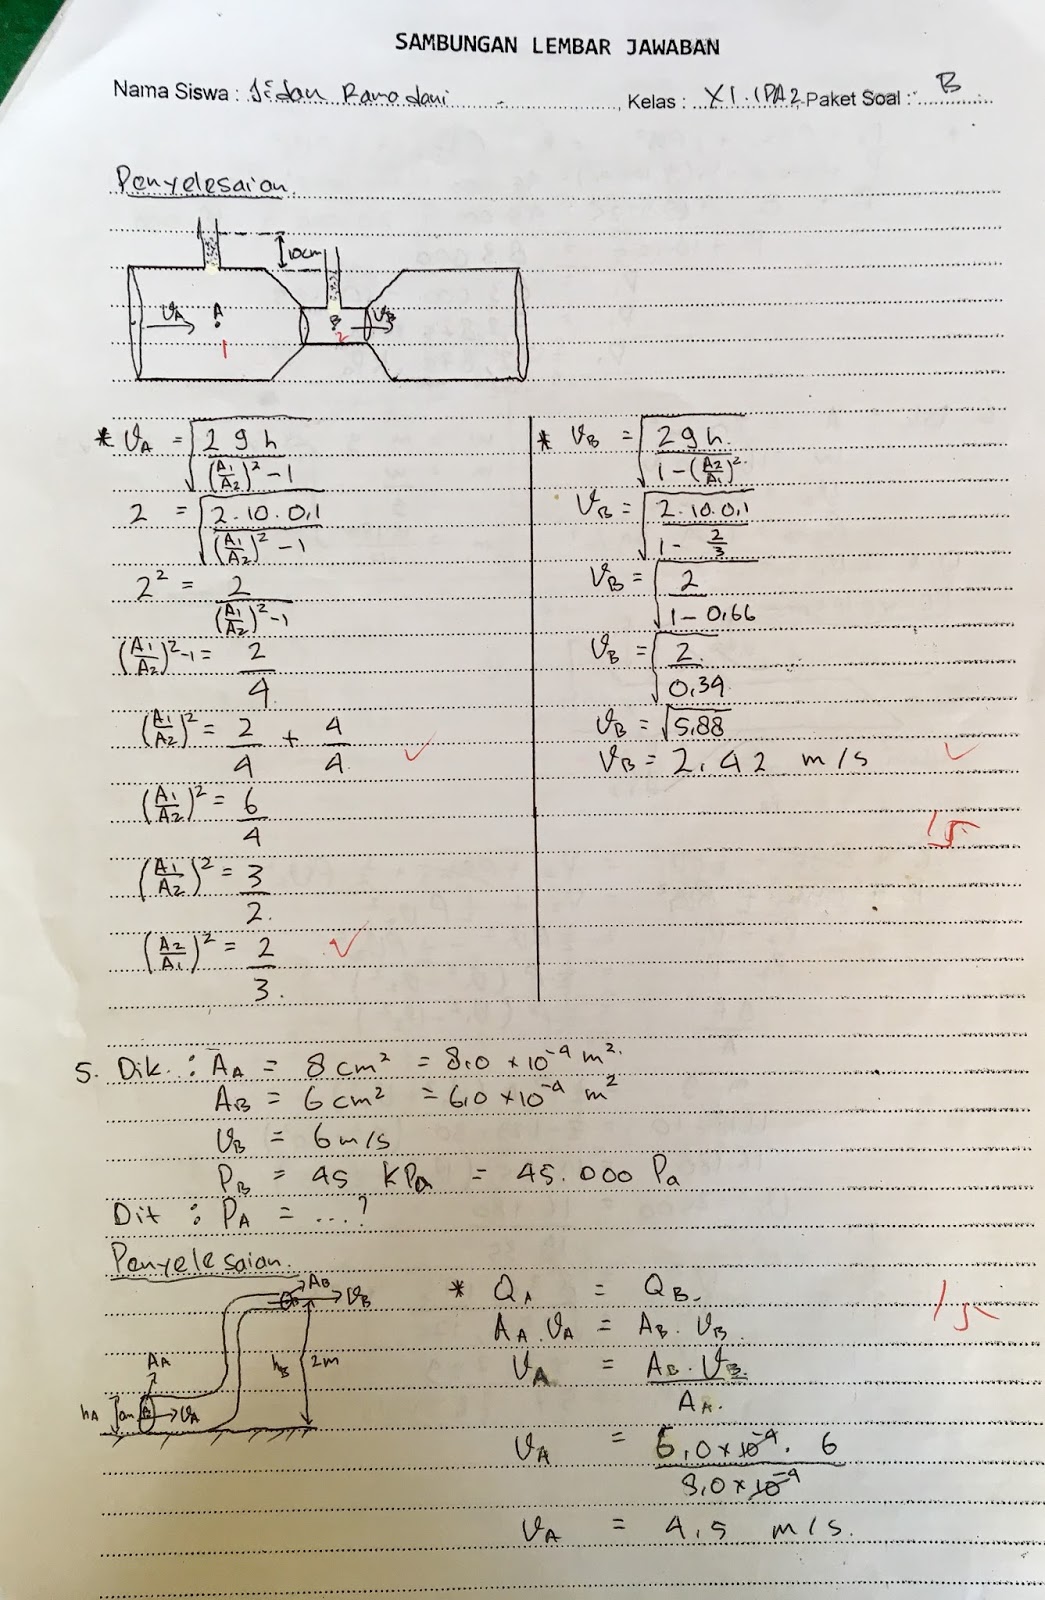 SAMBUNGAN LEMBAR JAWABAN
Nama Siswa : Jidan Ramadani Kelas : XI.IPA2 Paket Soal : B
Penyelesaian.
10cm
VA A
B VB
1
2
* VA = √(2 g h / ((A1/A2)² - 1))
2 = √(2.10.0,1 / ((A1/A2)² - 1))
2² = 2 / ((A1/A2)² - 1)
(A1/A2)² - 1 = 2/4
(A1/A2)² = 2/4 + 4/4
(A1/A2)² = 6/4
(A1/A2)² = 3/2.
(A2/A1)² = 2/3.
* VB = √(2gh. / (1 - (A2/A1)²))
VB = √(2.10.0,1 / (1 - 2/3))
VB = √(2 / (1 - 0,66))
VB = √(2. / 0,34)
VB = √5,88
VB = 2,42 m/s
15
5. Dik : AA = 8 cm² = 8,0 x 10⁻⁴ m².
AB = 6 cm² = 6,0 x 10⁻⁴ m²
VB = 6 m/s
PB = 45 kPa = 45.000 Pa
Dit : PA = ....?
Penyelesaian.
AB
VB
AA
hB 2m
hA
VA
* QA = QB.
AA.VA = AB.VB
VA = AB.VB / AA.
VA = 6,0 x 10⁻⁴. 6 / 8,0 x 10⁻⁴
VA = 4,5 m/s.
15